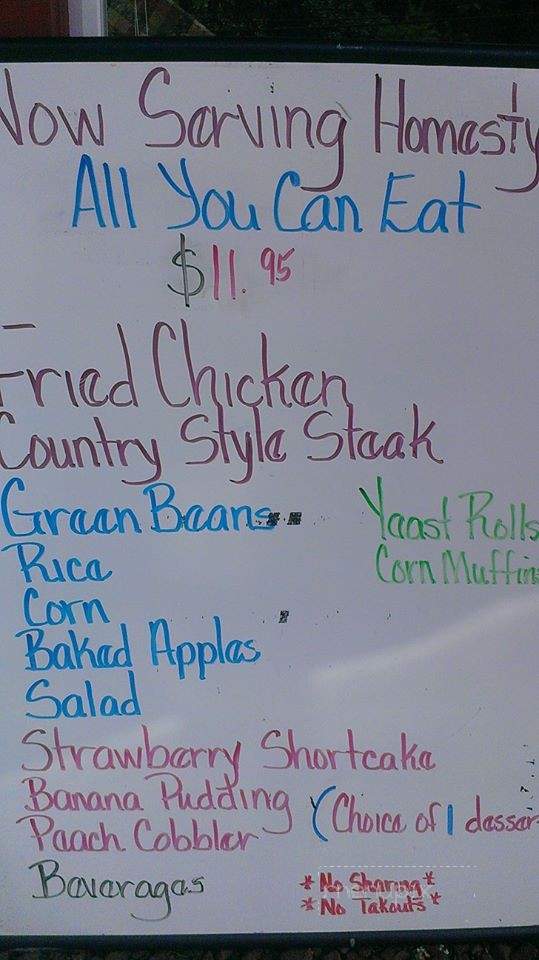 Now Serving Homesty
All You Can Eat
$11.95
Fried Chicken
Country Style Steak
Green Beans
Yeast Rolls
Rice
Corn Muffin
Corn
Baked Apples
Salad
Strawberry Shortcake
Banana Pudding
(Choice of 1 desser
Peach Cobbler
Beverages
*No Sharing*
*No Takouts*